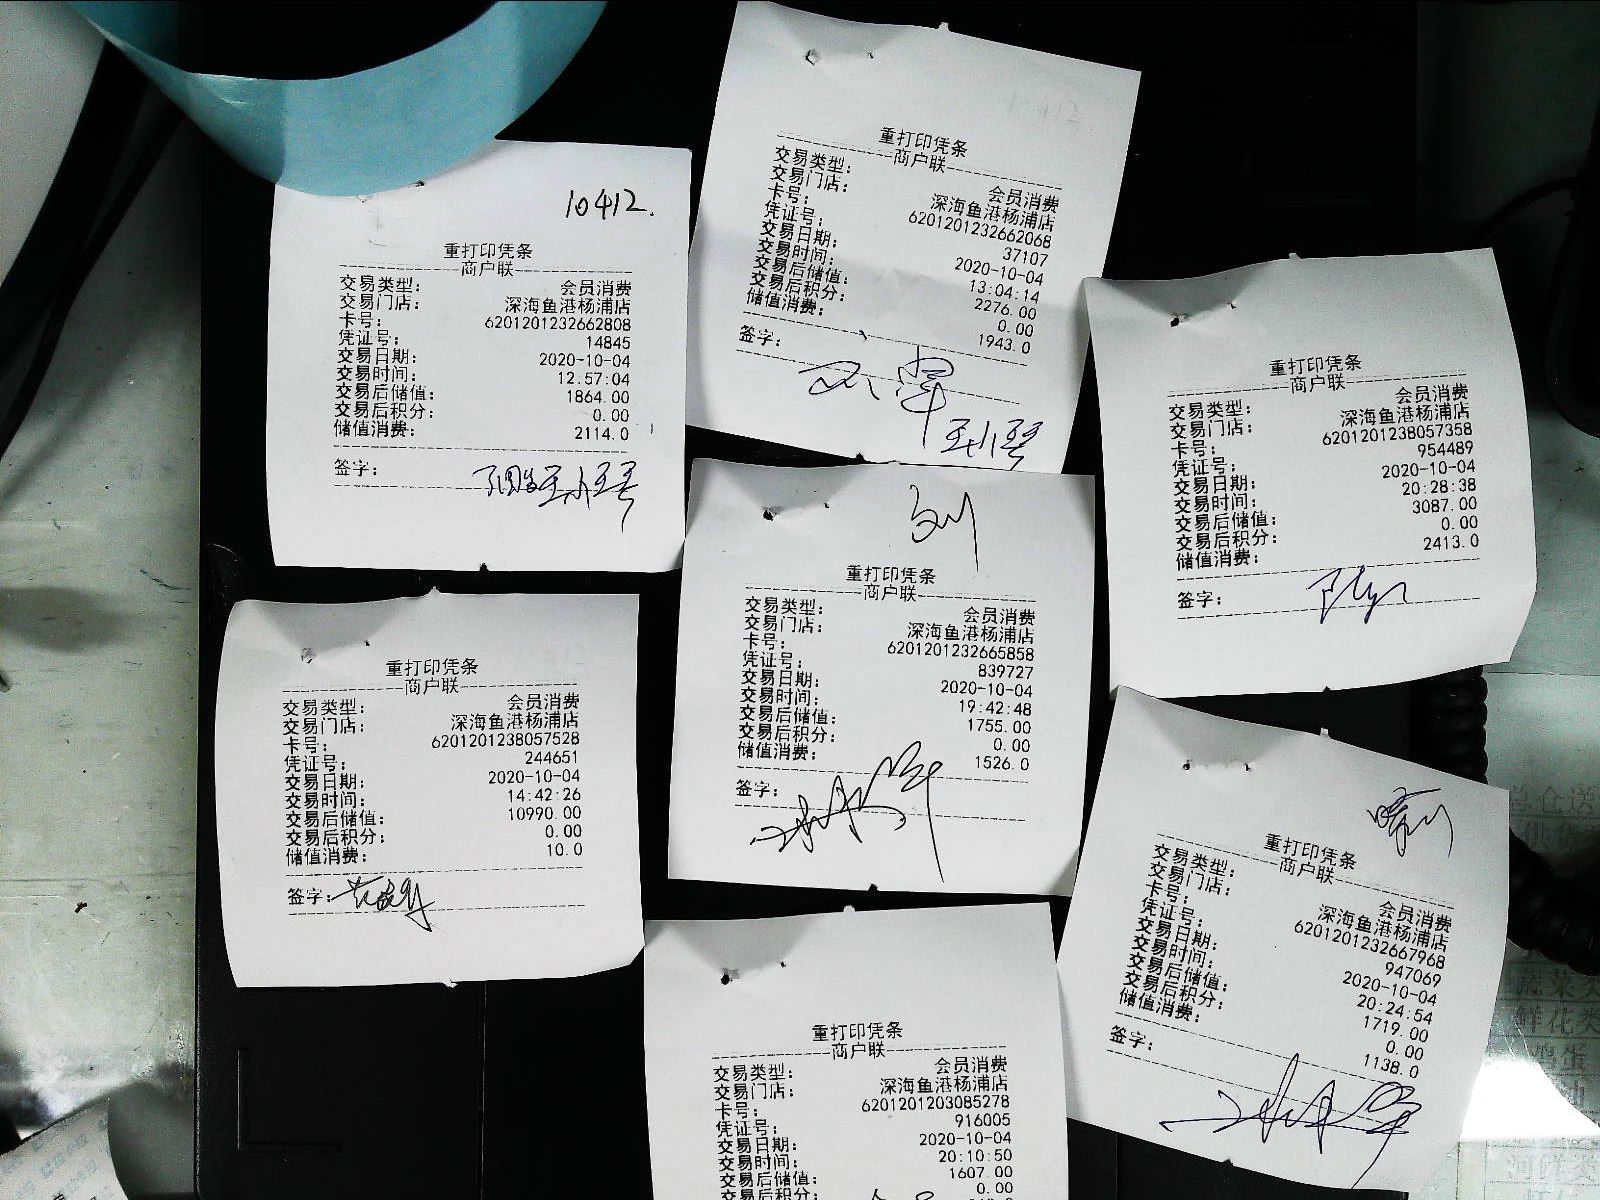 10412.
重打印凭条
商户联
交易类型: 会员消费
交易门店: 深海鱼港杨浦店
卡号: 6201201232662808
凭证号: 14845
交易日期: 2020-10-04
交易时间: 12:57:04
交易后储值: 1864.00
交易后积分: 0.00
储值消费: 2114.0
签字:
重打印凭条
商户联
交易类型: 会员消费
交易门店: 深海鱼港杨浦店
卡号: 6201201232662068
凭证号: 37107
交易日期: 2020-10-04
交易时间: 13:04:14
交易后储值: 2276.00
交易后积分: 0.00
储值消费: 1943.0
签字:
重打印凭条
商户联
交易类型: 会员消费
交易门店: 深海鱼港杨浦店
卡号: 6201201238057358
凭证号: 954489
交易日期: 2020-10-04
交易时间: 20:28:38
交易后储值: 3087.00
交易后积分: 0.00
储值消费: 2413.0
签字:
重打印凭条
商户联
交易类型: 会员消费
交易门店: 深海鱼港杨浦店
卡号: 6201201238057528
凭证号: 244651
交易日期: 2020-10-04
交易时间: 14:42:26
交易后储值: 10990.00
交易后积分: 0.00
储值消费: 10.0
签字:
重打印凭条
商户联
交易类型: 会员消费
交易门店: 深海鱼港杨浦店
卡号: 6201201232665858
凭证号: 839727
交易日期: 2020-10-04
交易时间: 19:42:48
交易后储值: 1755.00
交易后积分: 0.00
储值消费: 1526.0
签字:
重打印凭条
商户联
交易类型: 会员消费
交易门店: 深海鱼港杨浦店
卡号: 6201201232667968
凭证号: 947069
交易日期: 2020-10-04
交易时间: 20:24:54
交易后储值: 1719.00
交易后积分: 0.00
储值消费: 1138.0
签字:
重打印凭条
商户联
交易类型: 会员消费
交易门店: 深海鱼港杨浦店
卡号: 6201201203085278
凭证号: 916005
交易日期: 2020-10-04
交易时间: 20:10:50
交易后储值: 1607.00
交易后积分: 0.00